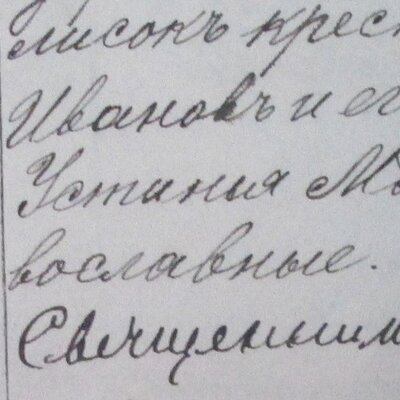 лисокъ крес
Ивановъ и ег
Устиния М
вославные.
Священним